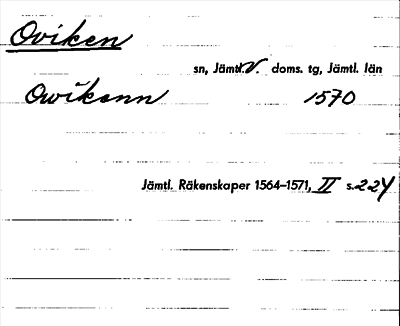 Oviken
sn, Jämtl. V. doms. tg, Jämtl. län
Owikenn 1570
Jämtl. Räkenskaper 1564–1571, II s. 224